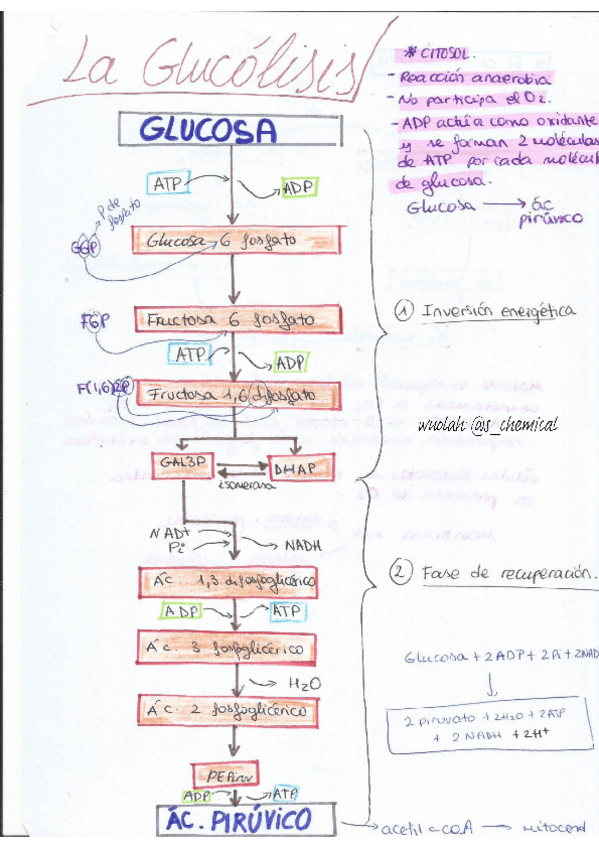 La Glucólisis
* CITOSOL.
- Reacción anaerobia
- No participa el O2.
- ADP actúa como oxidante
y se forman 2 moléculas
de ATP por cada molécul
de glucosa.
Glucosa → ác
pirúvico
GLUCOSA
ATP
ADP
P de
fosfato
G6P
Glucosa 6 fosfato
F6P
Fructosa 6 fosfato
ATP
ADP
F(1,6)2P
Fructosa 1,6 difosfato
GAL3P
DHAP
isomerasa
1 Inversión energética
wuolah: @js_chemical
NAD+
Pi
NADH
Ác. 1,3 difosfoglicérico
ADP
ATP
Ác. 3 fosfoglicérico
H2O
Ác. 2 fosfoglicérico
PEPirúv
ADP
ATP
ÁC. PIRÚVICO
2 Fase de recuperación.
Glucosa + 2ADP + 2Pi + 2NAD
↓
2 piruvato + 2H2O + 2ATP
+ 2 NADH + 2H+
→ acetil-coA → mitocond